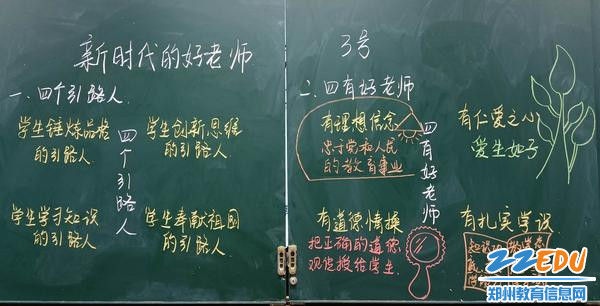 新时代的好老师
3号
一.四个引路人
学生锤炼品格
的引路人
四个引路人
学生创新思维
的引路人
学生学习知识
的引路人
学生奉献祖国
的引路人
二.四有好老师
有理想信念
忠于党和人民
的教育事业
四有好老师
有仁爱之心
爱生如子
有道德情操
把正确的道德
观传授给学生
有扎实学识
ZZEDU
郑州教育信息网